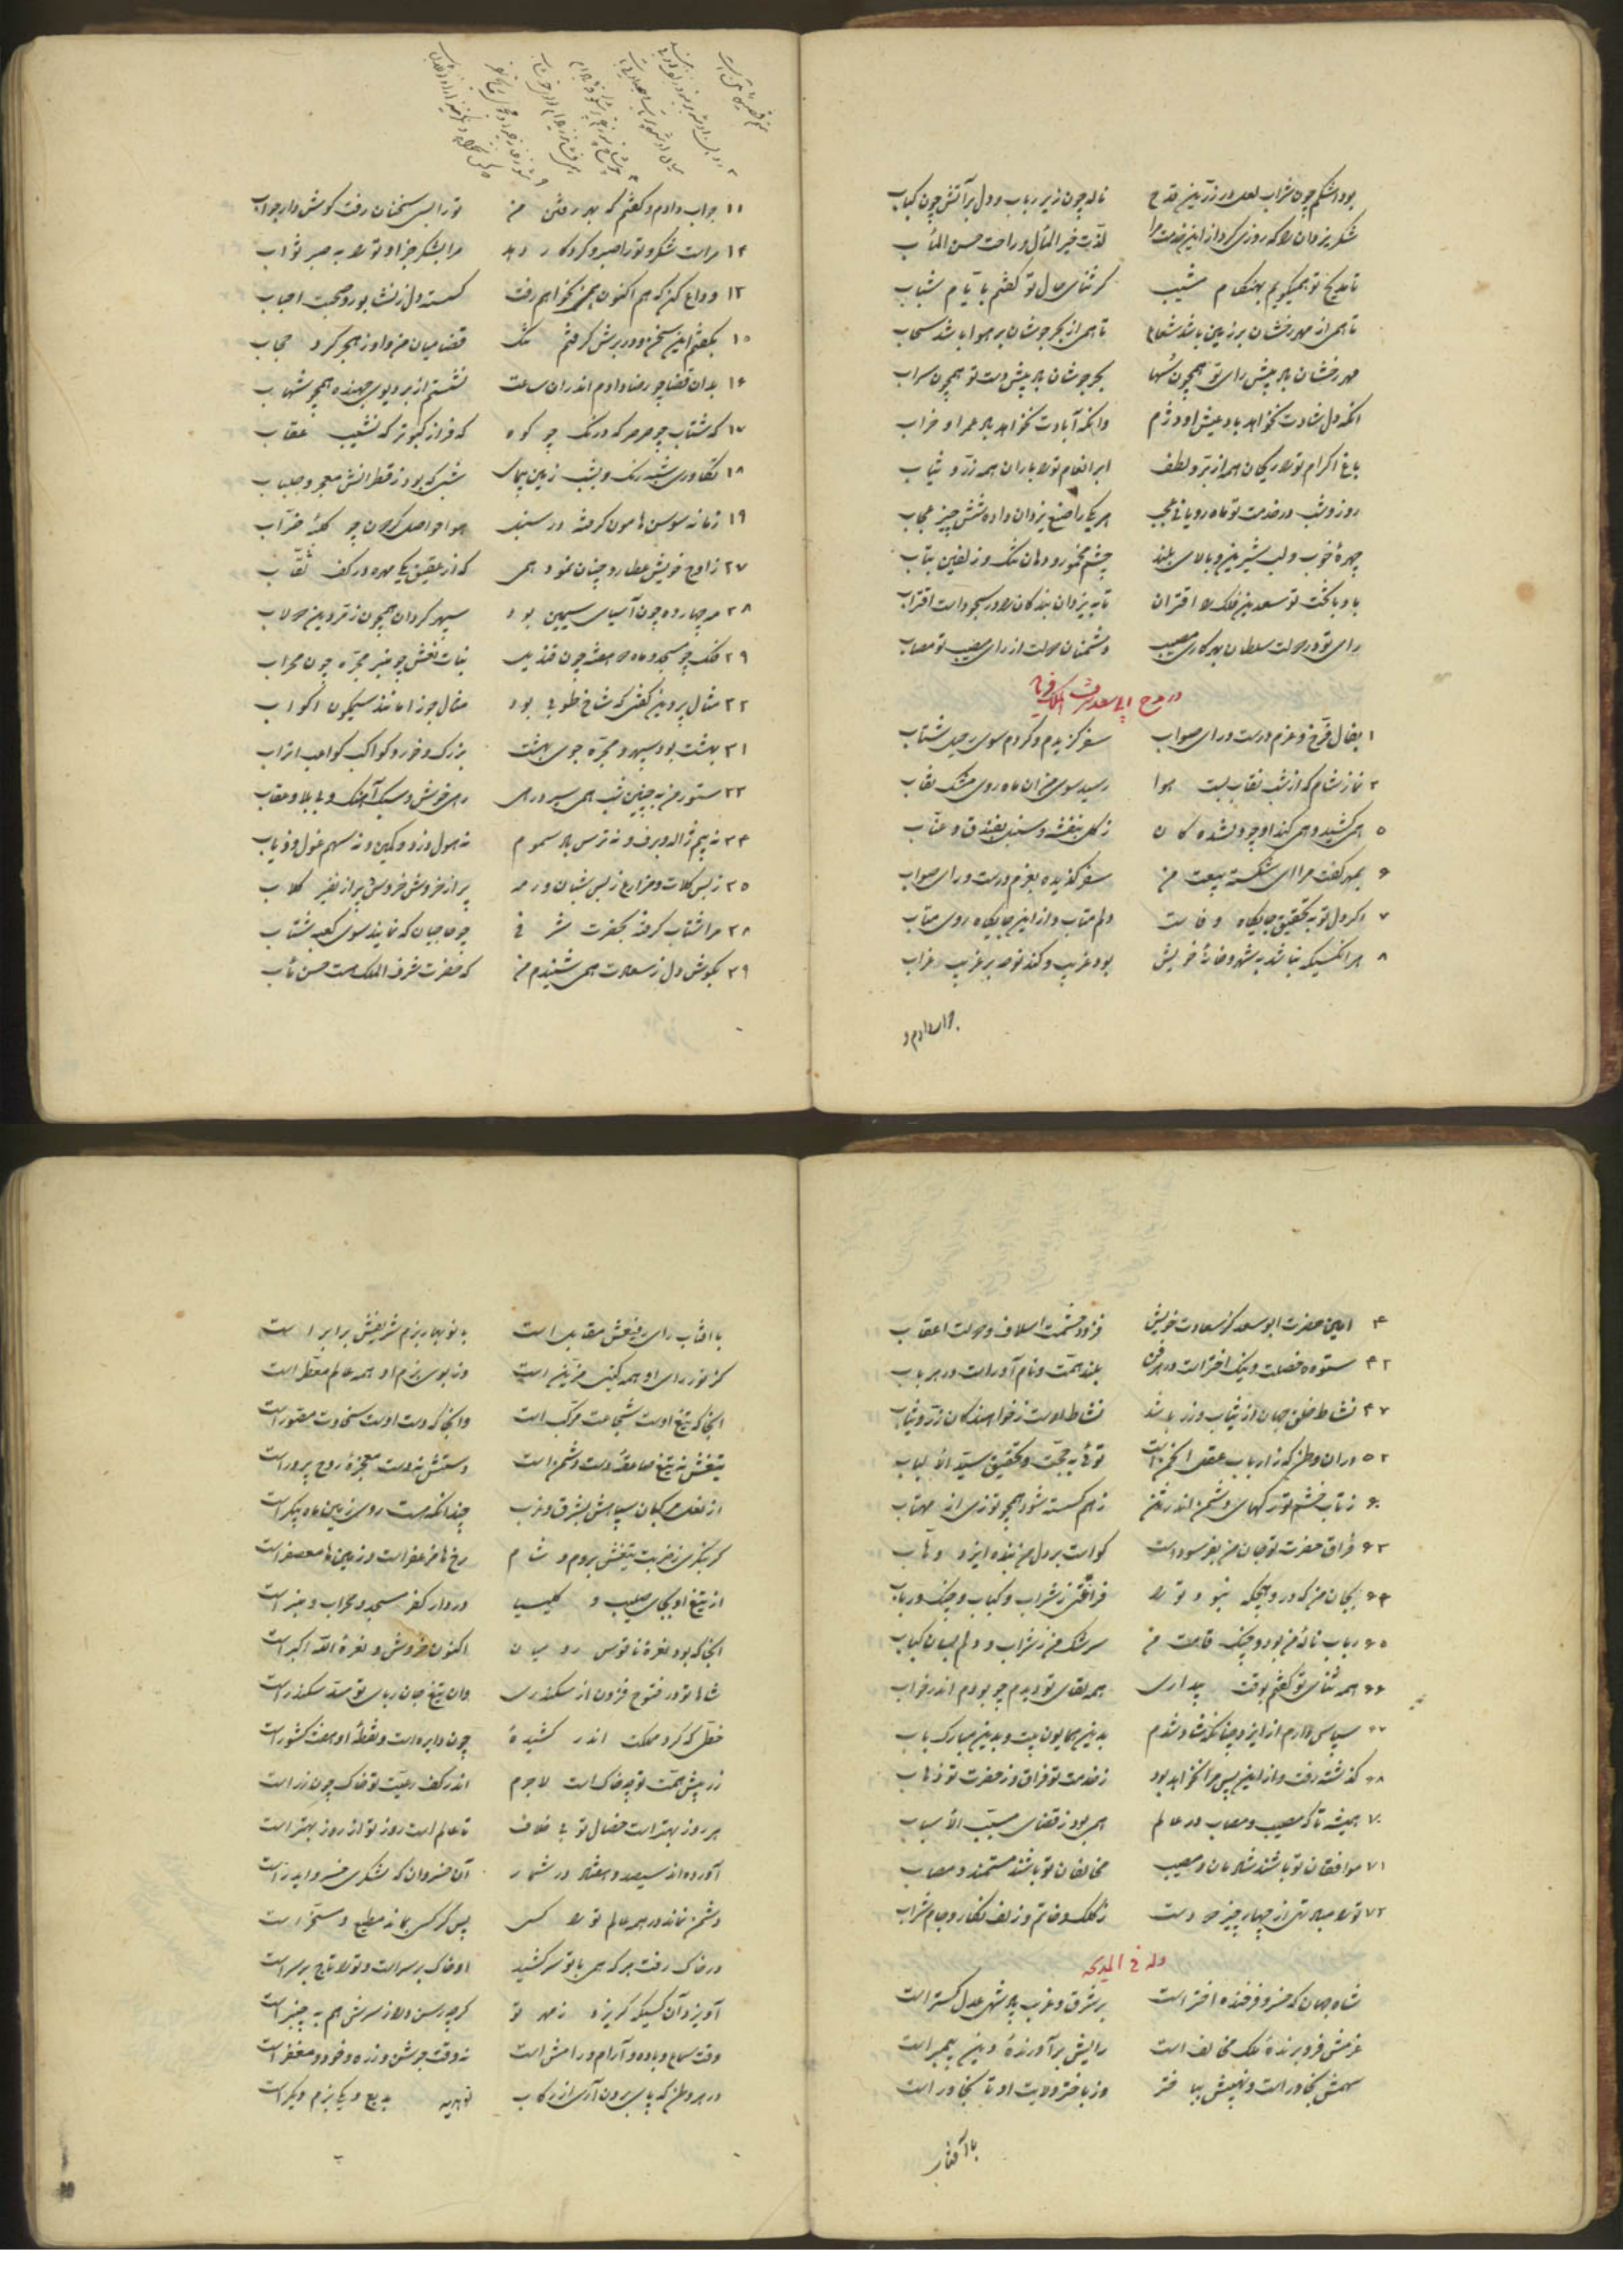 بود اشکم چون شراب لعل در زرین قدح ناله چون زیر رباب و دل بر آتش چون کباب
شکر یزدان را که روزی کرد ازین خدمت مرا لذّت خیر المآل و راحت حسن المآب
تا مدیح تو همیگویم بهنگام مشیب گر ثنای حال تو گفتم بایام شباب
تا همی از مهر رخشان بر زمین باشد شعاع تا همی از بحر جوشان بر هوا باشد سحاب
مهر رخشان باد پیش رای تو همچون سُها بحر جوشان باد پیش دست تو همچون سراب
آنکه دل شادت نخواهد باد عیش او دژم وانکه آبادت نخواهد باد عمر او خراب
باغ اکرام تو را ریحان همه از برّ و لطف ابر انعام تو را باران همه زرّ و ثیاب
روز و شب در خدمت تو ماه رویانی عجب هر یکی را صنع یزدان داده شش چیز عجاب
چهرهٔ خوب و لب شیرین و بالای بلند چشم مخمور و دهان تنگ و زلفین بتاب
باد با بخت تو سعدین فلک را اقتران تا به یزدان بندگان را در سجود است اقتراب
رای تو در دولت سلطان بهر کاری مصیب دشمنان دولت از رای مصیب تو مصاب
در مدح ابی سعد شرف الملک فرماید
۱ بفال فرّخ و عزم درست و رای صواب سفر گزیدم و کردم سوی رحیل شتاب
۲ نماز شام که از شب نقاب بست هوا رسید سوی من آن ماه روی مشک نقاب
۵ همی کشید و همی کند او چو دلشده گان ز گل بنفشه و سنبل بفندق و عنّاب
۶ بمهر گفت مرا ای شکسته بیعت من سفر گزیده بعزم درست و رای صواب
۷ اگر دل تو به تحقیق جایگاه وفاست دلم متاب و ازین جایگاه روی متاب
۸ هر آنکسیکه نباشد به شهر و خانهٔ خویش بود غریب و کند نوحه بر غریب غراب
جواب دادم و
۱۱ جواب دادم و گفتم که بهر رفتن من تو را بس سخنان رفت گوش دار جواب
۱۲ مراست شکر و تو را صبر و کردگار دهد مرا بشکر جزا و تو را به صبر ثواب
۱۳ وداع کن که هم اکنون همی بخواهم رفت گسسته دل ز نشابور و صحبت احباب
۱۵ بگفتم این سخن و در برش گرفتم تنگ قضا میان من و او ز هجر کرد حجاب
۱۶ بدان قضا چو رضا دادم اندران ساعت نشستم از بر دیوی جهنده همچو شهاب
۱۷ که شتاب چو صرصر که درنگ چو کوه که فراز کبوتر که نشیب عقاب
۱۸ تکاوری شبه رنگ و بشب زمین پیمای شبی که بود ز قطرانش معجر و جلباب
۱۹ زمانه سوسن هامون گرفته در سنبل هوا حواصل گردون چو کلبهٔ ضرّاب
۲۷ ز اوج خویش عطارد چنان نمود همی که از عقیق یکی مهره در کف نقّاب
۲۸ مه چهارده چون آسیای سیمین بود سپهر گردان همچون زمردین دولاب
۲۹ فلک چو مسجد و ماه دو هفته چون قندیل بنات نعش چو منبر مجرّه چون محراب
۳۲ مثال پروین گفتی که شاخ طوبی بود مثال جوزا مانند سیمگون اکواب
۳۱ بهشت بود سپهر و مجرّه جوی بهشت بزرگ و خرد کواکب کواعب اتراب
۳۳ ستور من به چنین شب همی سپرد رهی رهی خوش و سبک آهنگ و بی بلا و عقاب
۳۴ نه بیم ژاله و برف و نه ترس باد سموم نه هول دزد و کمین و نه سهم غول و ذیاب
۳۵ ز بس کلات و مزارع ز بس شبان و رمه پر از خروش خروس و پر از نفیر کلاب
۳۸ مرا شتاب گرفته بحضرت شرفی چو حاجیان که نمایند سوی کعبه شتاب
۳۹ بگوش دل ز سعادت همی شنیدم من که حضرت شرف الملک هست حسن مآب
۴۰ امین حضرت ابو سعد کز سعادت خویش فزود حشمت اسلاف و دولت اعقاب
۴۲ ستوده خصلت و نیک اختر است در هر فن بلند همّت و نام آور است در هر باب
۴۷ نشاط خلق جهان از ثیاب و زر باشد نشاط اوست ز خواهندگان زرّ و ثیاب
۵۲ در آن وطن که ز ارباب عقل انجمن است توئی به حجّت و تحقیق سیّد الالباب
۶۰ ز تاب خشم تو رگهای دشمن اندر تن ز هم گسسته شود همچو توزی از مهتاب
۶۲ فراق حضرت تو جان من بفرسوده است گواست بر دل من بنده ایزد وهّاب
۶۴ بجان من که در و هیچگه نبود تو را فراغتی ز شراب و کباب و چنگ و رباب
۶۵ رباب ناله من بود و چنگ قامت من سرشک من ز شراب و دلم بسان کباب
۶۶ همه ثنای تو گفتم بوقت بیداری همه لقای تو دیدم چو بودم اندر خواب
۶۷ سپاس دارم از ایزد چنانکه شاد شدم بدین همایون بیت و بدین مبارک باب
۶۸ گذشته رفت و ازین پس مرا نخواهد بود ز خدمت تو فراق و ز حضرت تو ذهاب
۷۰ همیشه تا که مصیب و مصاب در عالم همی بود ز قضای مسبّب الاسباب
۷۱ موافقان تو باشند شادمان و مصیب مخالفان تو باشند مستمند و مصاب
۷۲ تو را مباد تهی از چهار چیز دو دست ز کلک و خاتم و زلف نگار و جام شراب
وله فی المدیحه
شاه جهان که خسرو فرخنده اختر است بر شرق و غرب پادشهی عدل گستر است
عزمش فرو برندهٔ ملک مخالف است رایش بر آورندهٔ دین پیمبر است
سهمش بخاور است و نهیبش بباختر وز باختر ولایت او تا بخاور است
با آفتاب
با افتاب رای رفیعش مقابل است با نوبهار بزم شریفش برابر است
کز نور رای او همه گیتی مزیّن است وز بوی بزم او همه عالم معطّر است
آنجا که تیغ اوست شجاعت مرکّب است وانجا که دست اوست سخاوت مصوّر است
تیغش نه تیغ صاعقهٔ دست دشمن است دستش نه دست معجزهٔ روح پرور است
از نعل مرکبان سپاهش بشرق و غرب چندانکه هست روی زمین ماه پیکر است
گر بنگری ز ضربت تیغش بروم و شام رخ ها مزعفر است و زمین ها معصفر است
از تیغ او بجای صلیب و کلیسیا در دار کفر مسجد و محراب و منبر است
آنجا که بود نعرهٔ ناقوس رومیان اکنون خروش و نعرهٔ الله اکبر است
شاها تو در فتوح فزون از سکندری وان تیغ جان ربای تو سدّ سکندر است
خطّی که گرد مملکت اندر کشیدهٔ چون دایره است و نقطهٔ او هفت کشور است
زر پیش همّت تو چو خاک است لاجرم اندر کف رعیّت تو خاک چون زر است
هر روز بهتر است خصال تو بی خلاف تا عالم است روز تو از روز بهتر است
آورده اند سیصد و هفتاد در شمار آن خسروان که لشکری خسرو ایدر است
دشمن نماند در همه عالم تو را کسی پس هر کسی بماند مطیع و مسخّر است
در خاک رفت هر که همی با تو سر کشید او خاک بر سر است و تو را تاج بر سر است
آویزد آن کسیکه گریزد ز مهر تو گرچه رسن دراز سرش هم به چنبر است
وقت سماع و باده و آرام و رامش است نه وقت جوشن و زره و خود و مغفر است
در هر وطن که پای برون آری از رکاب بدیع و یکی بزم دیگر است